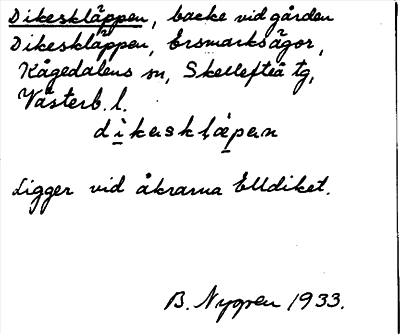 Dikeskläppen, backe vid gården
Dikeskläppen, Ersmarksägor,
Kågedalens sn, Skellefteå tg,
Västerb. l.
dikaskläpan
Ligger vid åkrarna Elldiket.
B. Nygren 1933.